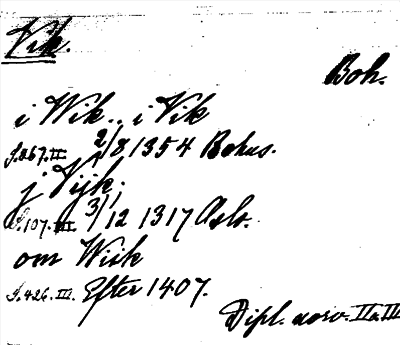 Vik.
Boh.
i Wik., i Vik
S.267.II. 2/8 1354 Bohus.
j Vijk;
S.107.III. 3/12 1317 Oslo.
om Wiik
S.426.II. Efter 1407.
Dipl. norv. II a. III